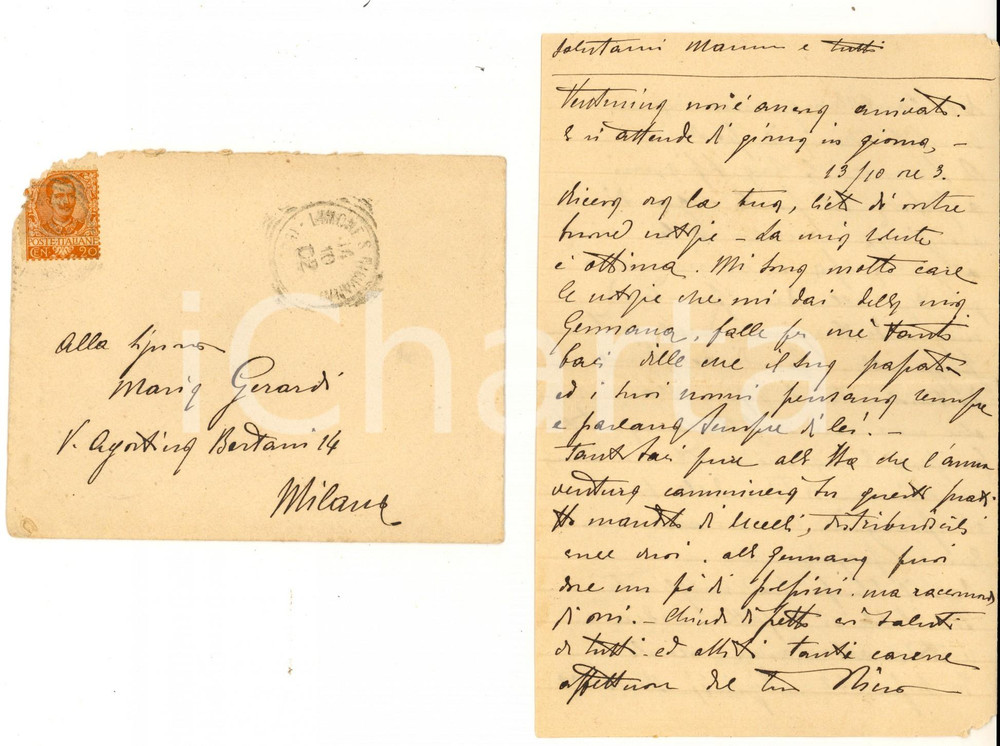 POSTE ITALIANE
CEN. 20
LIMONE S. GIOVANNI
14
10
02
Alla Signora
Maria Gerardi
V. Agostino Bertani 14
Milano
iCharta
Salutami Mamma e tutti
Venturina non è ancora arrivato.
E si attende di giorno in giorno, –
13/10 ore 3.
Ricevo ora la tua, lieto di vostre
buone notizie – La mia salute
è ottima. Mi sono molto care
le notizie che mi dai della mia
Germana, falle per me tanti
baci dille che il suo papà
ed i suoi nonni pensano sempre
e parlano sempre di lei. –
Tanti baci pure alla che l'anno
venturo camminerà su questi prati.
Ho mandato di uccelli, distribuiscili
come vuoi. alla Germana puoi
dare un pò di polpini. ma raccomando
di ossi. – Chiudo di fretta coi saluti
di tutti ed abbiti tante carezze
affettuose dal tuo Piero